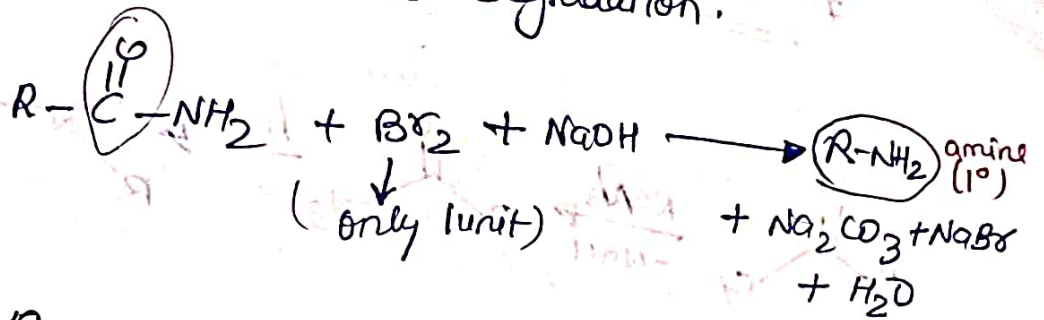 R - C - NH2 + Br2 + NaOH → R-NH2 amine (1°)
O
( only 1 unit)
+ Na2CO3 + NaBr
+ H2O